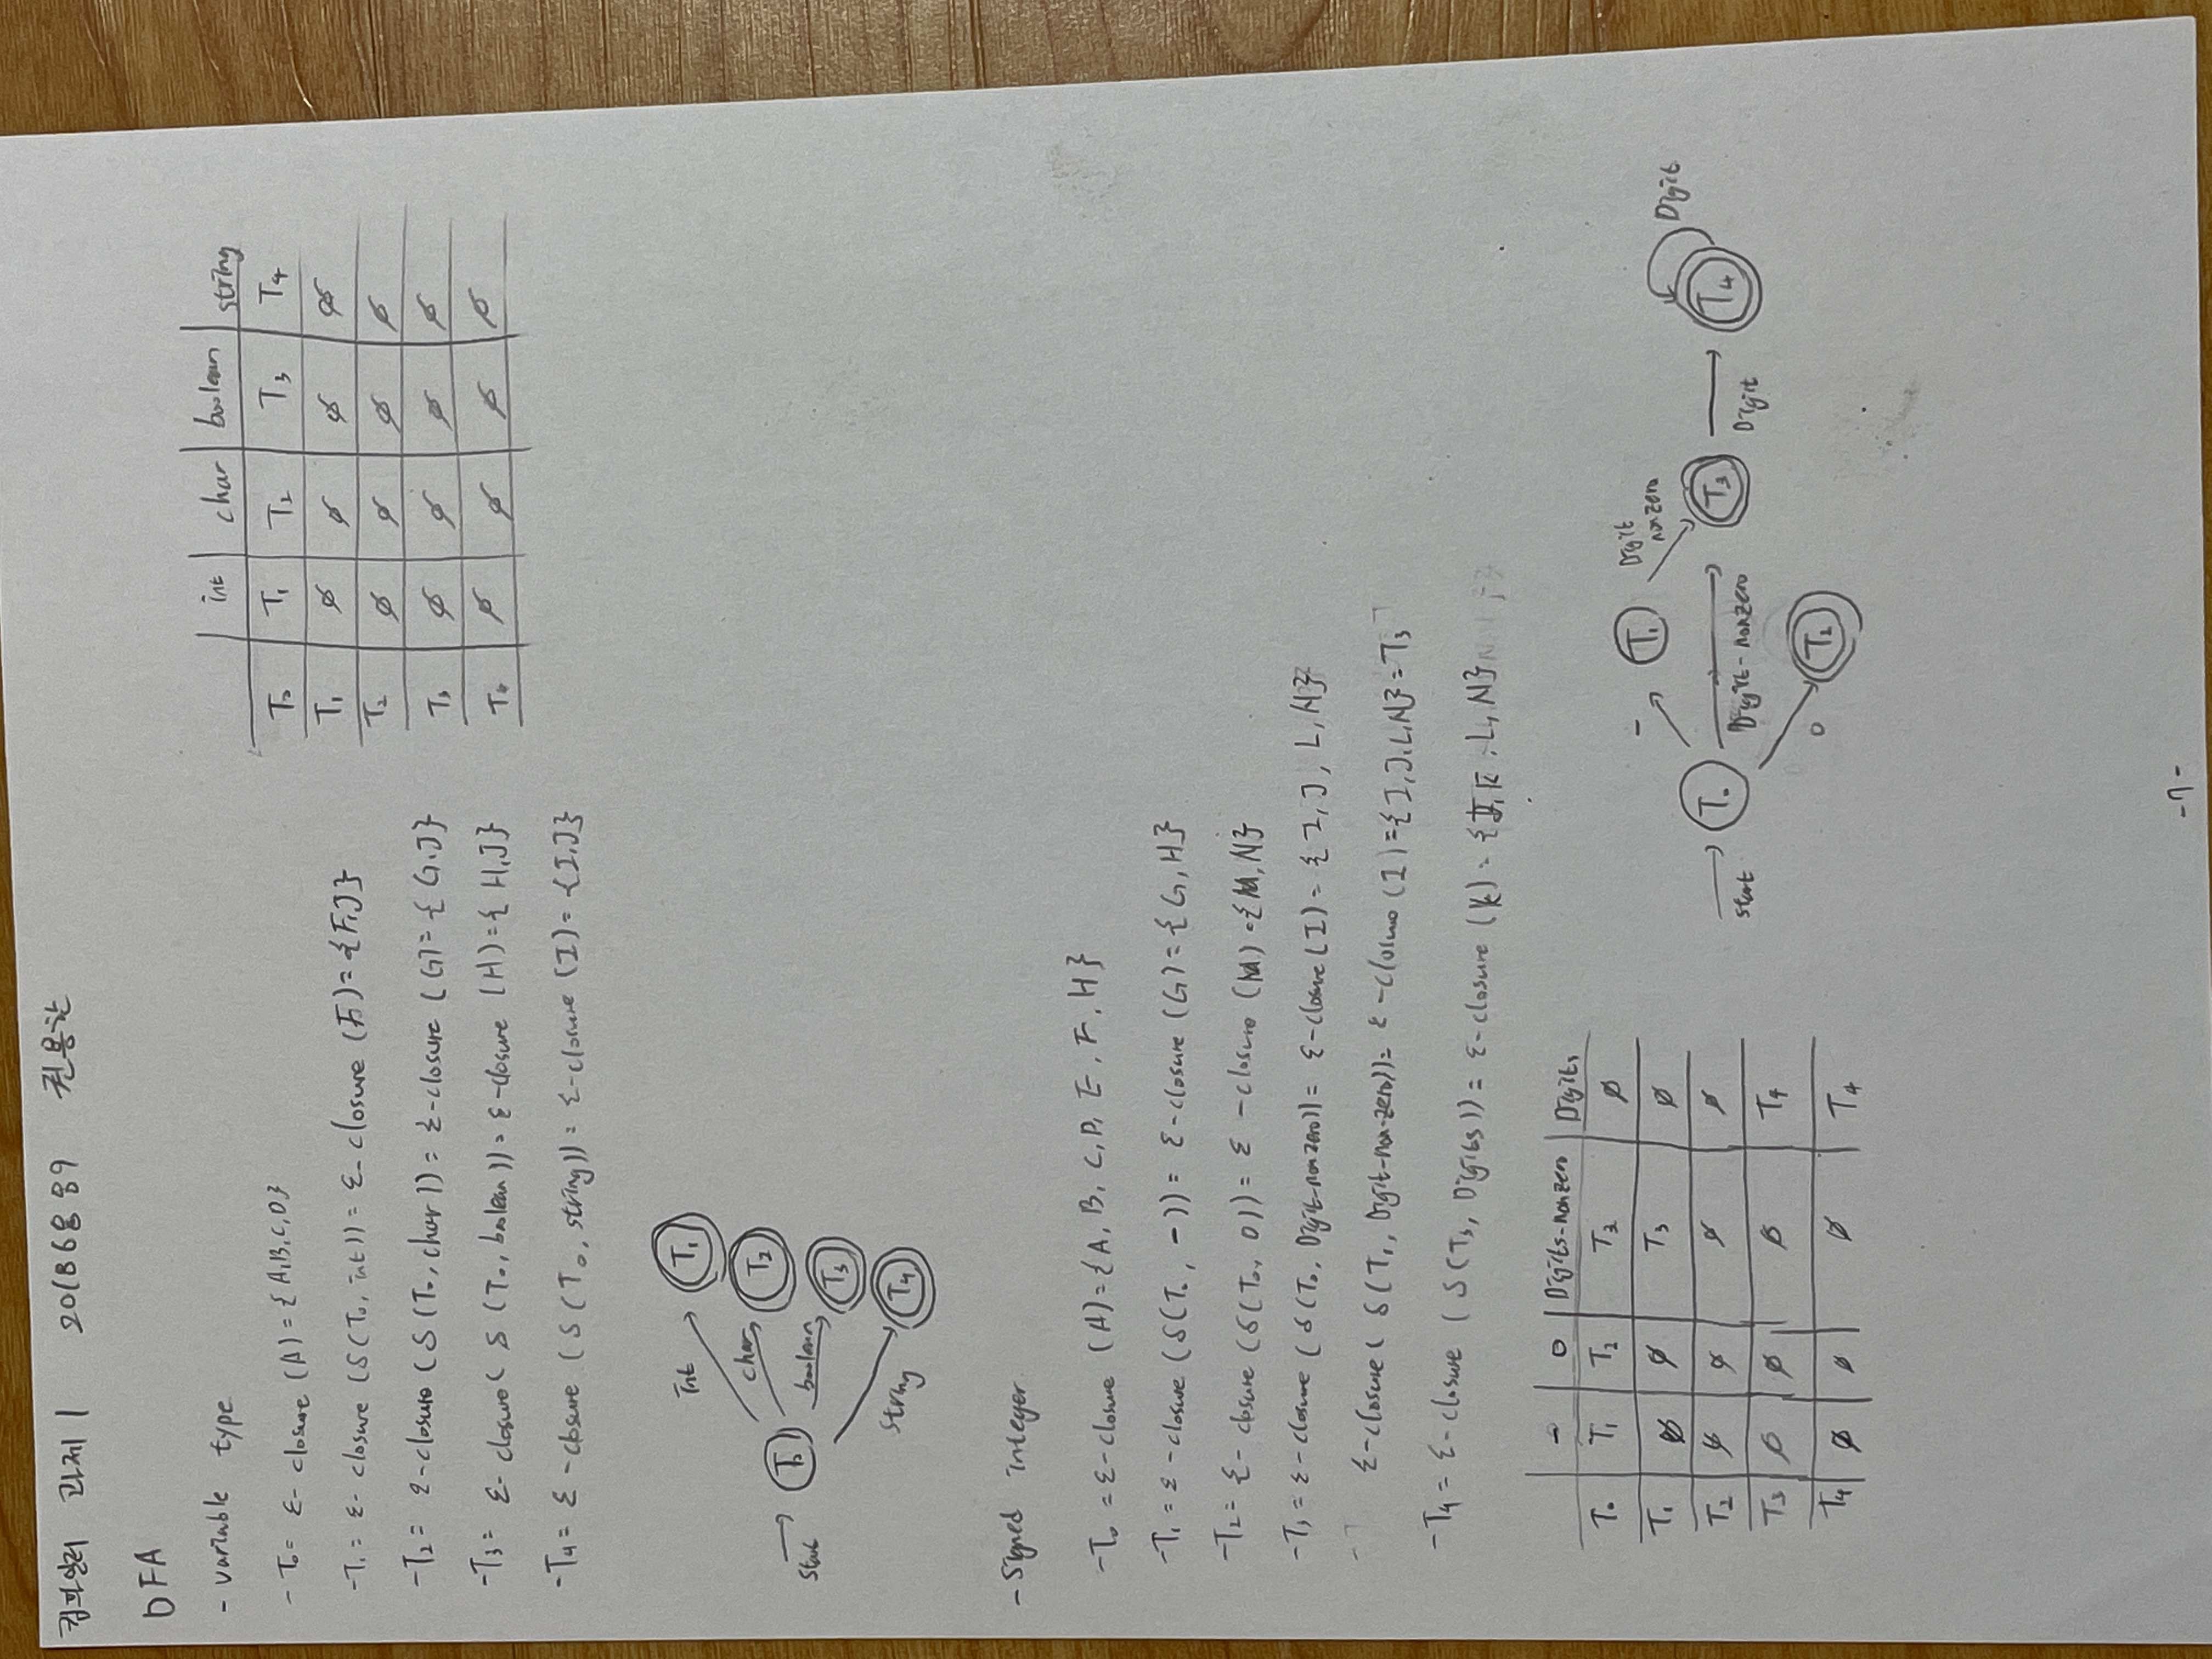 컴파일러 과제 1 20186889 권용한
DFA
- variable type
- T₀ = ε- closure (A) = {A,B,C,D}
- T₁ = ε- closure (δ(T₀, int)) = ε- closure (F) = {F,J}
- T₂ = ε-closure (δ(T₀, char)) = ε-closure (G) = {G,J}
- T₃ = ε- closure (δ(T₀, boolean)) = ε-closure (H) = {H,J}
- T₄ = ε-closure (δ(T₀, string)) = ε-closure (I) = {I,J}
int char boolean string
T₀ T₁ T₂ T₃ T₄
T₁ ∅ ∅ ∅ ∅
T₂ ∅ ∅ ∅ ∅
T₃ ∅ ∅ ∅ ∅
T₄ ∅ ∅ ∅ ∅
int T₁
char T₂
start T₀
boolean T₃
string T₄
- Signed integer
- T₀ = ε-closure (A) = {A, B, C, D, E, F, H}
- T₁ = ε-closure (δ(T₀, -)) = ε-closure (G) = {G, H}
- T₂ = ε- closure (δ(T₀, 0)) = ε -closure (M) = {M, N}
- T₃ = ε-closure (δ(T₀, Digit-nonzero)) = ε-closure (I) = {I, J, L, N}
ε-closure (δ(T₁, Digit-non-zero)) = ε-closure (I) = {I,J,L,N} = T₃
- T₄ = ε-closure (δ(T₃, Digits)) = ε-closure (K) = {J, K, L, N}
- 0 Digits-nonzero Digits
T₀ T₁ T₂ T₃ ∅
T₁ ∅ ∅ T₃ ∅
T₂ ∅ ∅ ∅ ∅
T₃ ∅ ∅ ∅ T₄
T₄ ∅ ∅ ∅ T₄
- T₁ Digit nonzero
start T₀ Digit-nonzero T₃ Digit T₄ Digit
0 T₂
-7-